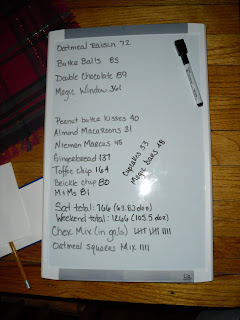 Oatmeal Raisin 72
Butter Balls 85
Double Chocolate 89
Magic Window 361
Peanut butter Kisses 40
Almond Macaroons 31
Nieman Marcus 45
Gingerbread 137
Toffee chip 164
Brickle chip 80
M+Ms 81
Cupcakes 33
Magic bars 48
Sat total: 766 (63.83 doz)
Weekend total: 1266 (105.5 doz)
Chex Mix (in gals) |||| |||| ||||
Oatmeal squares Mix ||||